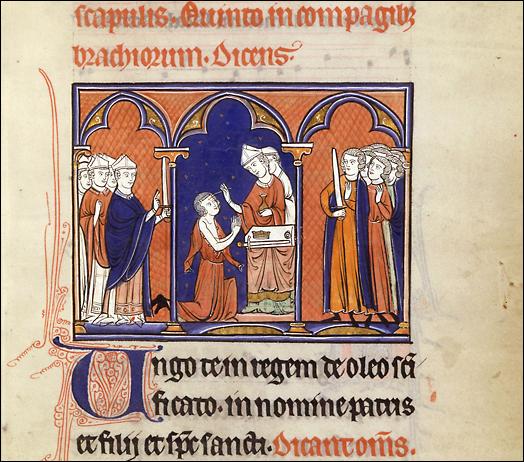 scapulis. Quinto in compagibꝫ
brachiorum. Dicens.
Ungo te in regem de oleo sc̄i
ficato. in nomine patris
et filij et sp̄c sancti. Dicant om̄s.